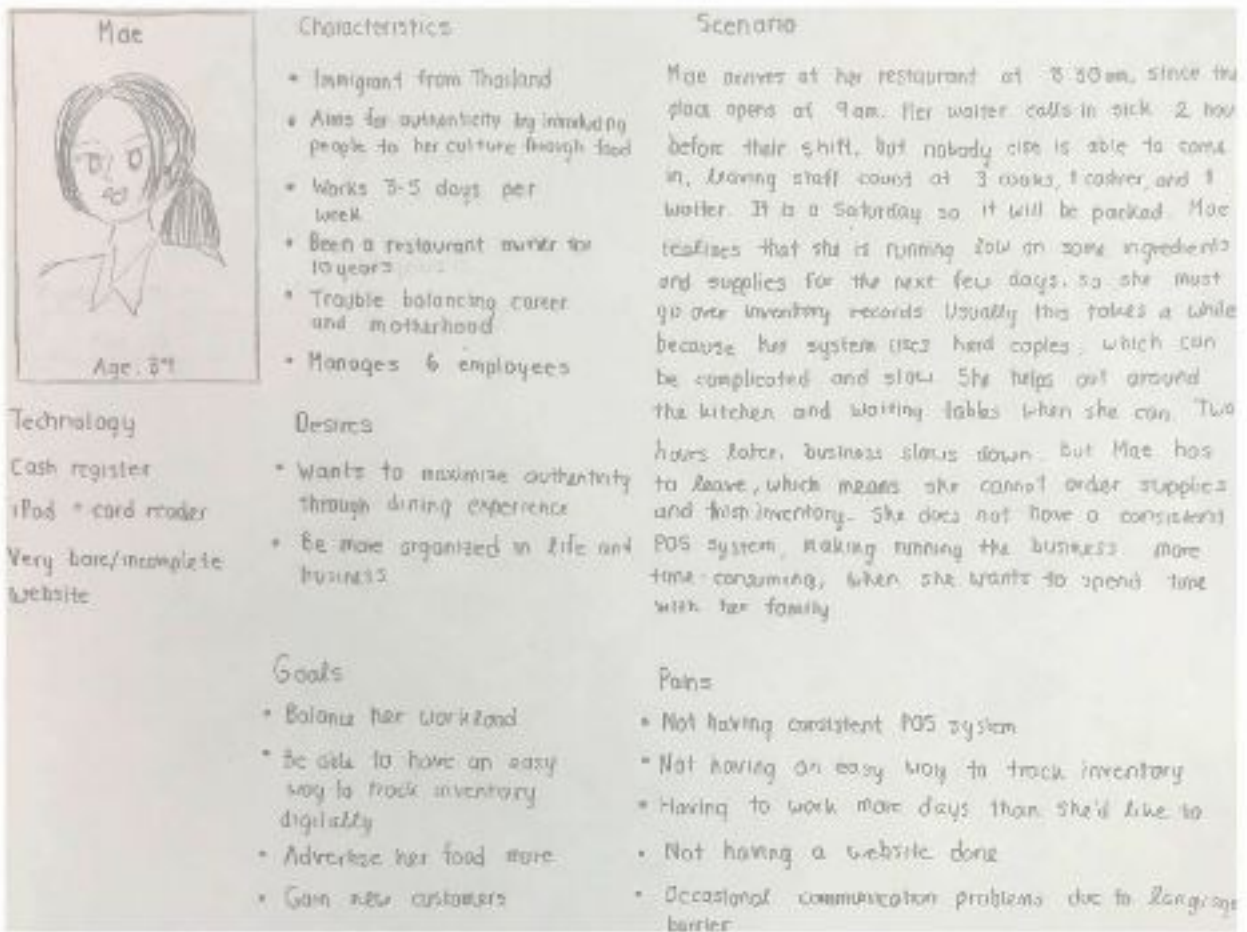 Mae
Age: 39
Technology
Cash register
iPad + card reader
Very bare/incomplete
website
Characteristics
• Immigrant from Thailand
• Aims for authenticity by introducing
people to her culture through food
• Works 3-5 days per
week
• Been a restaurant owner for
10 years
• Trouble balancing career
and motherhood
• Manages 6 employees
Desires
• Wants to maximize authenticity
through dining experience
• Be more organized in life and
business
Goals
• Balance her workload
• Be able to have an easy
way to track inventory
digitally
• Advertise her food more
• Gain new customers
Scenario
Mae arrives at her restaurant at 8:30am, since the
place opens at 9am. Her waiter calls in sick 2 hou
before their shift, but nobody else is able to come
in, leaving staff count at 3 cooks, 1 cashier, and 1
waiter. It is a Saturday so it will be packed. Mae
realizes that she is running low on some ingredients
and supplies for the next few days, so she must
go over inventory records. Usually this takes a while
because her system uses hard copies, which can
be complicated and slow. She helps out around
the kitchen and waiting tables when she can. Two
hours later, business slows down, but Mae has
to leave, which means she cannot order supplies
and finish inventory. She does not have a consistent
POS system, making running the business more
time-consuming, when she wants to spend time
with her family
Pains
• Not having consistent POS system
• Not having an easy way to track inventory
• Having to work more days than she'd like to
• Not having a website done
• Occasional communication problems due to language
barrier